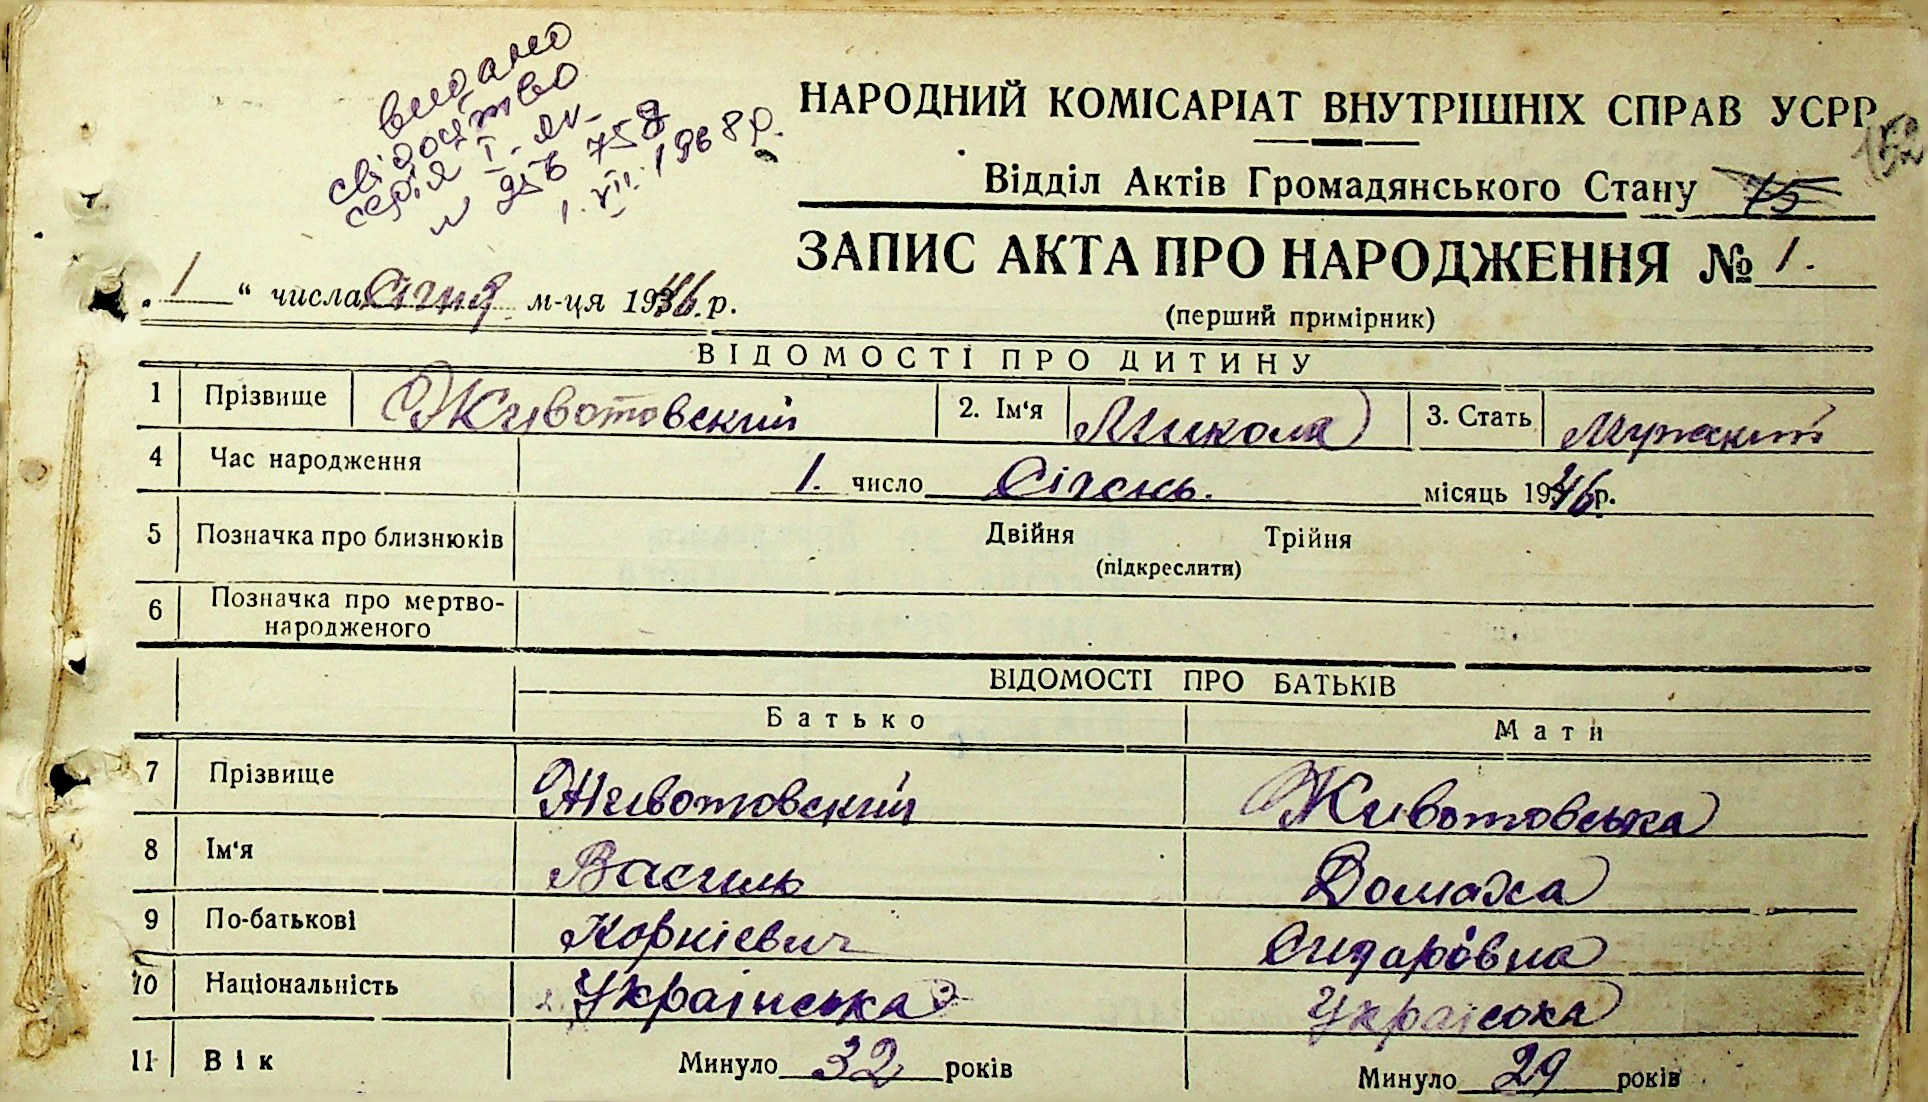 видано
свідоцтво
серія І-
1.VII.1968р.
НАРОДНИЙ КОМІСАРІАТ ВНУТРІШНІХ СПРАВ УСРР
Відділ Актів Громадянського Стану 75
ЗАПИС АКТА ПРО НАРОДЖЕННЯ № 1.
(перший примірник)
„1“ числа Січня м-ця 1946.р.
ВІДОМОСТІ ПРО ДИТИНУ
1 Прізвище Животовский 2. Ім‘я Микола 3. Стать Мужский
4 Час народження 1. число Січень. місяць 1946р.
5 Позначка про близнюків Двійня Трійня
(підкреслити)
6 Позначка про мертво-
народженого
ВІДОМОСТІ ПРО БАТЬКІВ
Батько Мати
7 Прізвище Животовский Животовська
8 Ім‘я Василь Домаха
9 По-батькові Корнієвич Сидаровна
10 Національність Українська Украіська
11 Вік Минуло 32 років Минуло 29 років